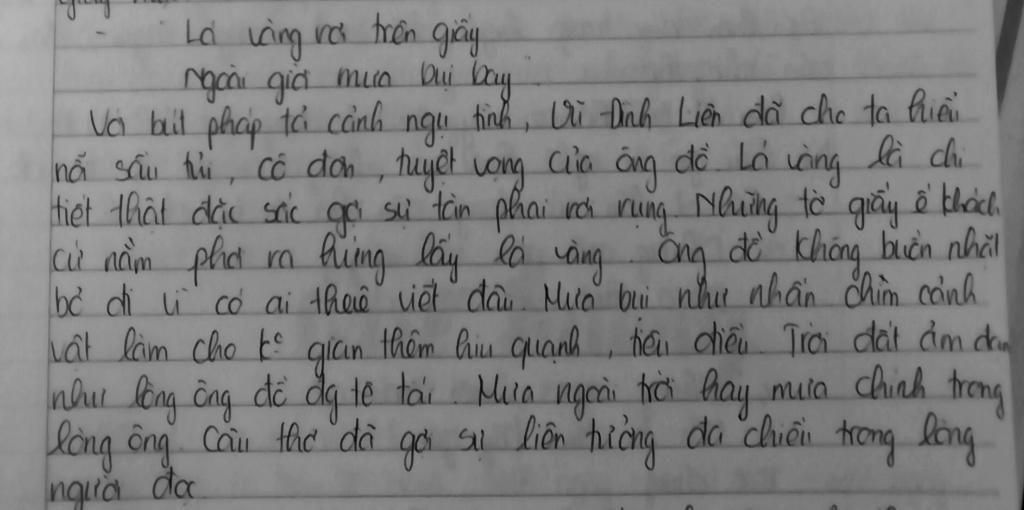 - Lá vàng rơi trên giấy
Ngoài giời mưa bụi bay.
Với bút pháp tả cảnh ngụ tình, Vũ Đình Liên đã cho ta hiểu
nỗi sầu tủi, cô đơn, tuyệt vọng của ông đồ. Lá vàng là chi
tiết thật đặc sắc gợi sự tàn phai rơi rụng. Những tờ giấy ế khách
cứ nằm phơi ra hứng lấy lá vàng. Ông đồ không buồn nhặt
bỏ đi vì có ai thuê viết đâu. Mưa bụi như nhấn chìm cảnh
vật làm cho ko gian thêm hiu quạnh, tiêu điều. Trời đất ảm đạm
như lòng ông đồ đg tê tái. Mưa ngoài trời hay mưa chính trong
lòng ông. Câu thơ đã gợi sự liên tưởng đa chiều trong lòng
người đọc